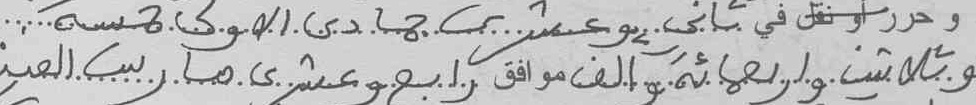 وحرر أو نقل في ثاني وعشري جمادي الاولى خمسة
وثلاثين واربعمائة وآلف موافق رابع وعشري مارس